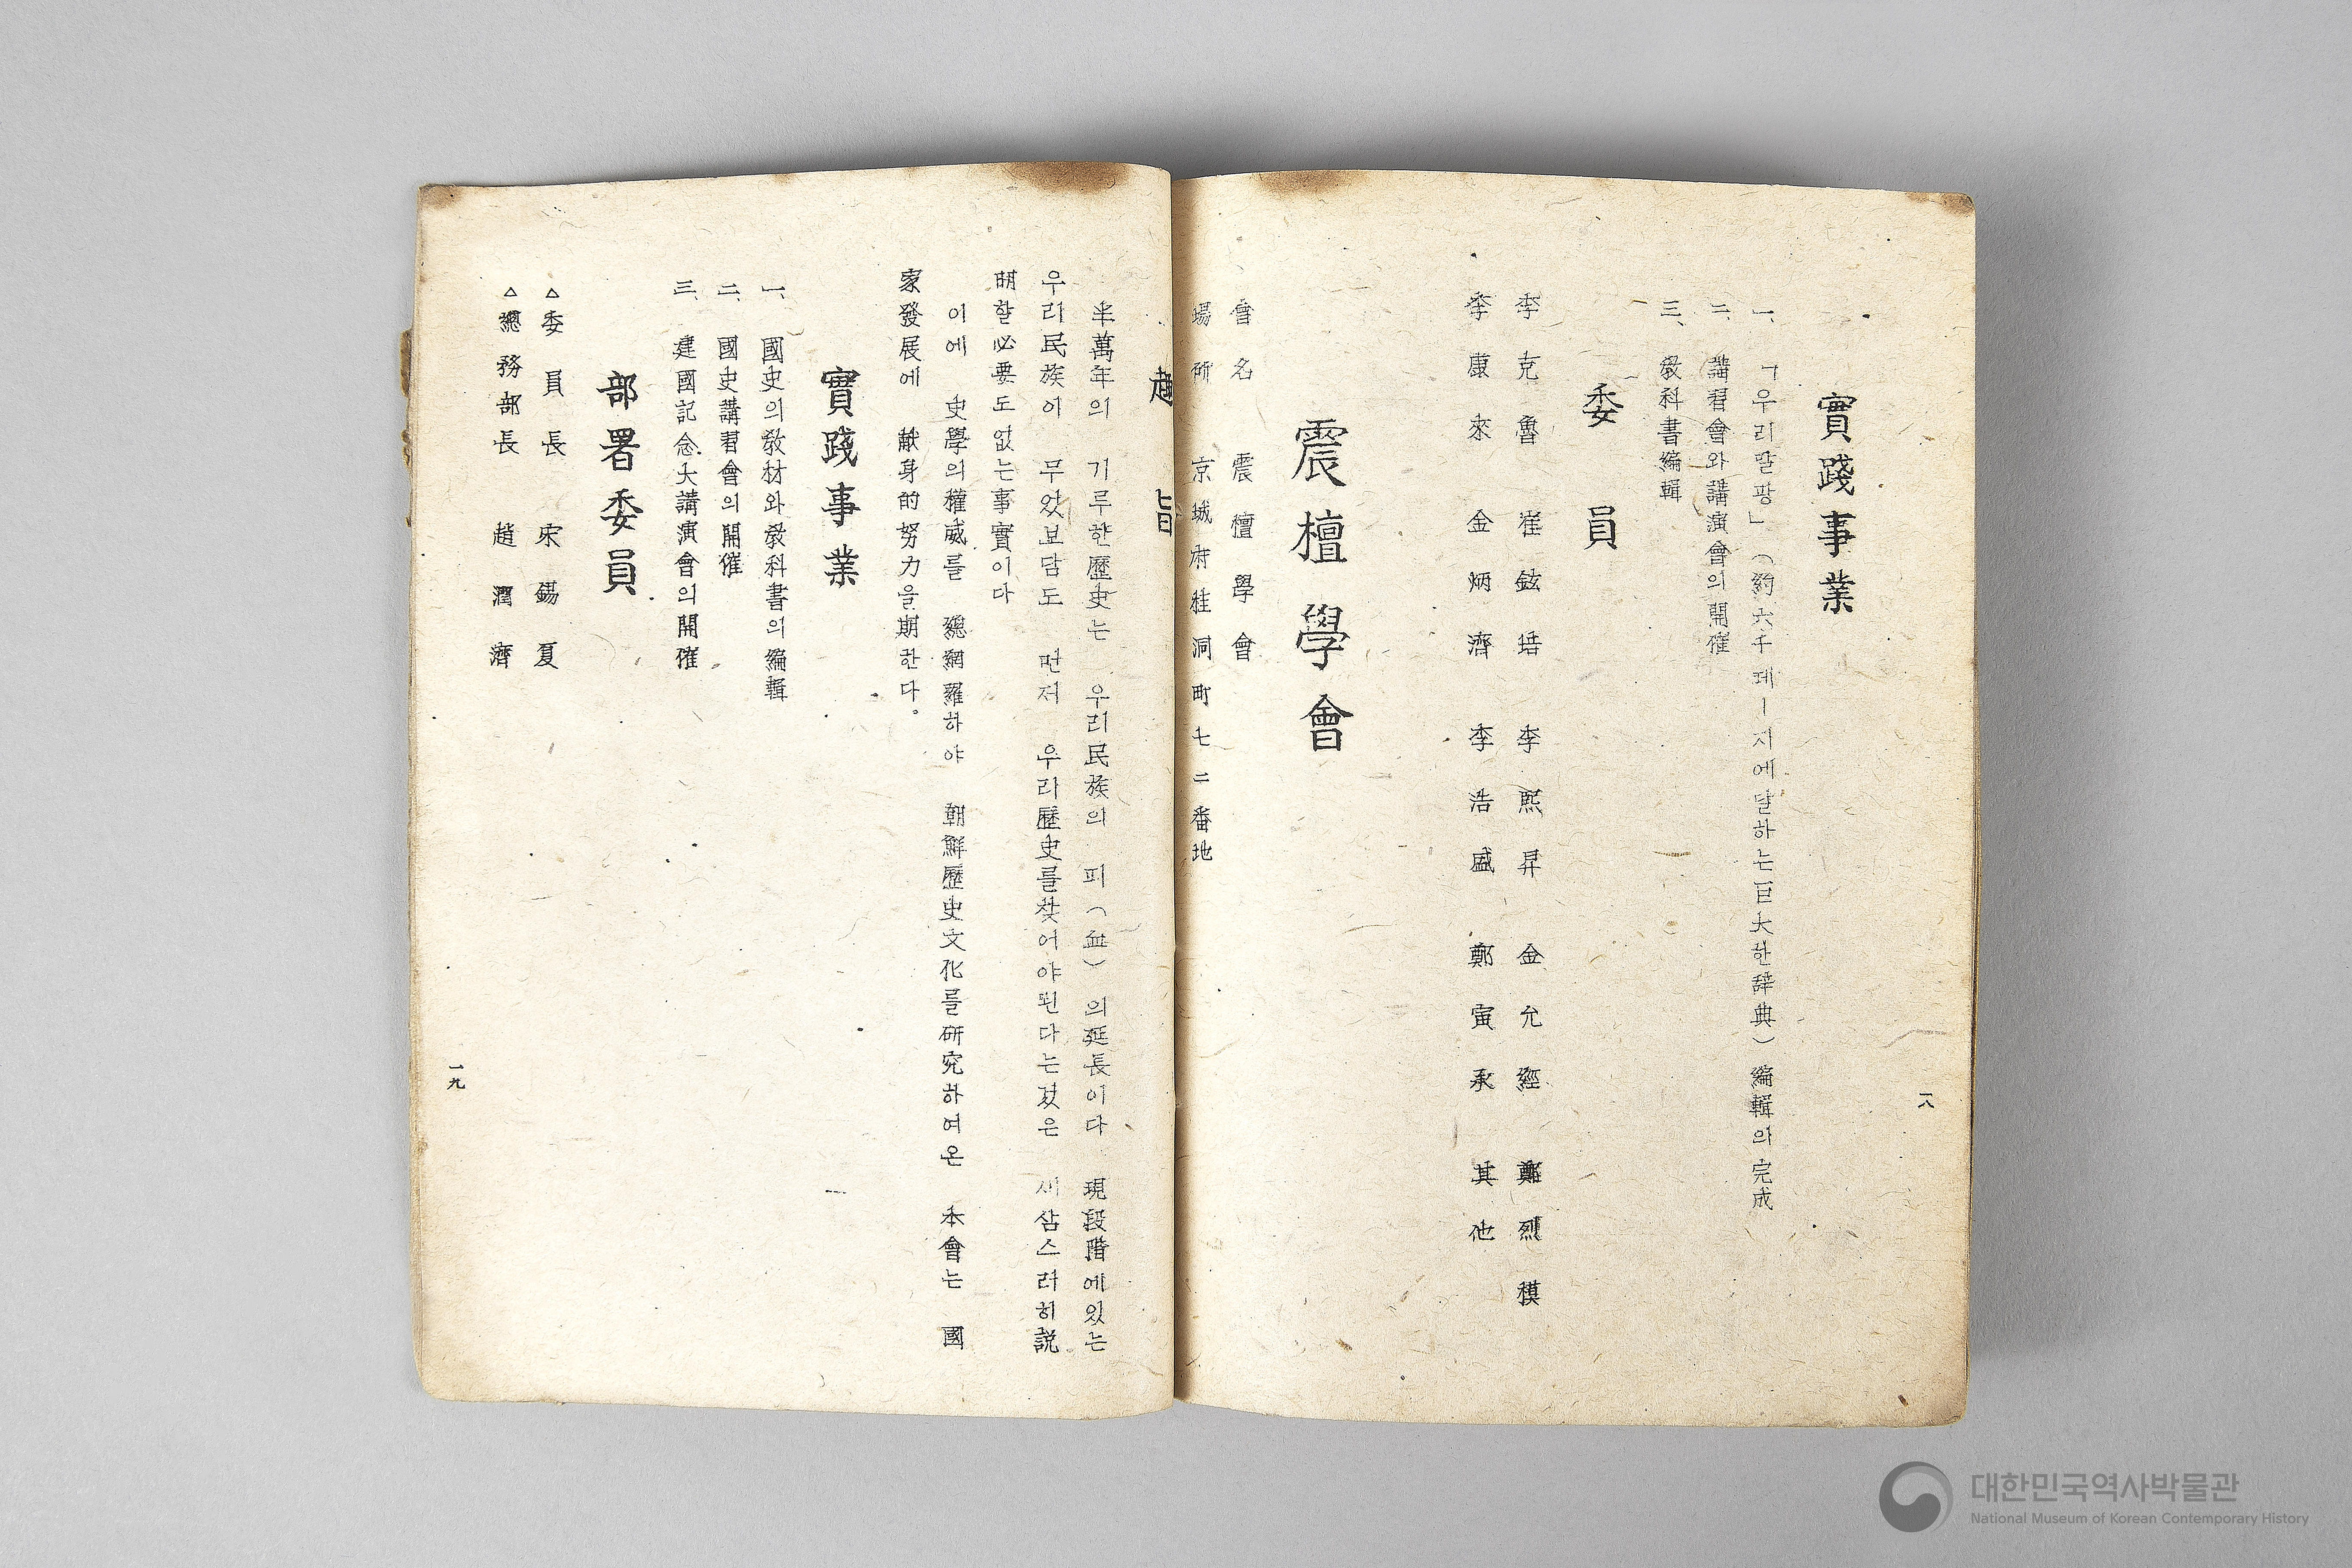 實踐事業
一、「우리말광」（約六千페ー지에달하는巨大한辭典）編輯의完成
二、講習會와講演會의開催
三、敎科書編輯
委員
李克魯 崔鉉培 李熙昇 金允經 鄭烈模
李康來 金炳濟 李浩盛 鄭寅承 其他
震檀學會
會名 震檀學會
場所 京城府桂洞町七二番地
一八
趣旨
半萬年의 기루한歷史는 우리民族의 피（血）의延長이다 現段階에있는
우리民族이 무었보담도 먼저 우리歷史를찾어야된다는겄은 새삼스러히說
明할必要도없는事實이다
이에 史學의權威를 總網羅하야 朝鮮歷史文化를硏究하여온 本會는 國
家發展에 献身的努力을期한다。
實踐事業
一、國史의敎材와敎科書의編輯
二、國史講習會의開催
三、建國記念大講演會의開催
部署委員
△委員長 宋錫夏
△總務部長 趙潤濟
一九
대한민국역사박물관
National Museum of Korean Contemporary History